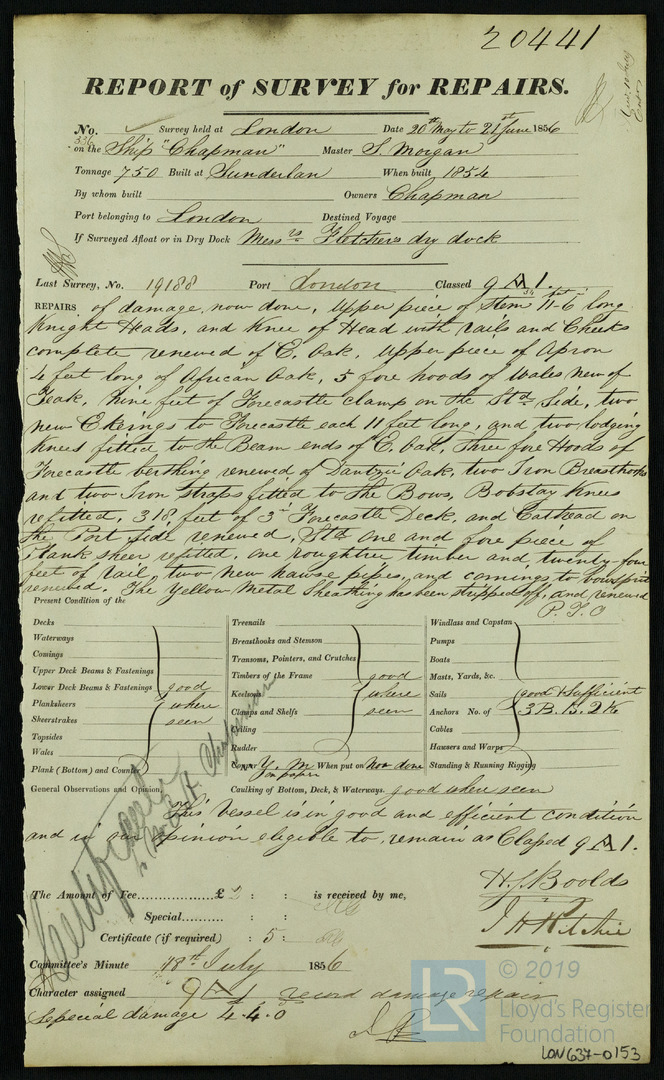 20441
REPORT of SURVEY for REPAIRS.
No. 336 Survey held at London Date 20th May to 21st June 1856
on the Ship "Chapman" Master S. Morgan
Tonnage 750 Built at Sunderlan When built 1854
By whom built Owners Chapman
Port belonging to London Destined Voyage
If Surveyed Afloat or in Dry Dock Messrs Fletchers dry dock
Last Survey, No. 19188 Port London Classed 9 A 1.
REPAIRS of damage now done, Upper piece of Stem 11-6 long
Knight Heads, and Knee of Head with rails and Cheeks
complete renewed of E. Oak, Upper piece of Apron
4 feet long of African Oak, 5 fore hoods of Wales new of
Teak, Nine feet of Forecastle clamp on the Std Side, two
new Ekeings to Forecastle each 11 feet long, and two lodging
Knees fitted to the Beam ends of E. Oak, Three fore Hoods of
Forecastle berthing renewed of Dantzic Oak, two Iron Breasthooks
and two Iron Straps fitted to the Bows, Bobstay Knees
refitted, 318 feet of 3in Forecastle Deck, and Cathead on
the Port side renewed, Std one and fore piece of
Plank sheer refitted, one roughtree timber and twenty-four
feet of rail, two new hawse pipes, and comings to bowsprit
renewed. The Yellow Metal Sheathing has been stripped off, and renewed
P.T.O
Present Condition of the
Decks
Waterways
Comings
Upper Deck Beams & Fastenings
Lower Deck Beams & Fastenings good
Planksheers where
Sheerstrakes seen
Topsides
Wales
Plank (Bottom) and Counter
Treenails
Breasthooks and Stemson
Transoms, Pointers, and Crutches
Timbers of the Frame good
Keelsons where
Clamps and Shelfs seen
Ceiling
Rudder
Copper Y. M. When put on Now done
on paper
Windlass and Capstan
Pumps
Boats
Masts, Yards, &c.
Sails good & Sufficient
Anchors No. of 3 B. 1 S. 2 K
Cables
Hawsers and Warps
Standing & Running Rigging
General Observations and Opinion, Caulking of Bottom, Deck, & Waterways. good when seen
This vessel is in good and efficient condition
and in our opinion eligible to remain as Classed 9 A 1.
Chapman
The Amount of Fee £ 2 : : is received by me,
Special : :
Certificate (if required) : 5 :
H. J. Boolds
J H Ritchie
Committee's Minute 18th July 1856
Character assigned 9 A 1 record damage repair
Special damage 4.4.0
LR
© 2019
Lloyd's Register
Foundation
LON637-0153